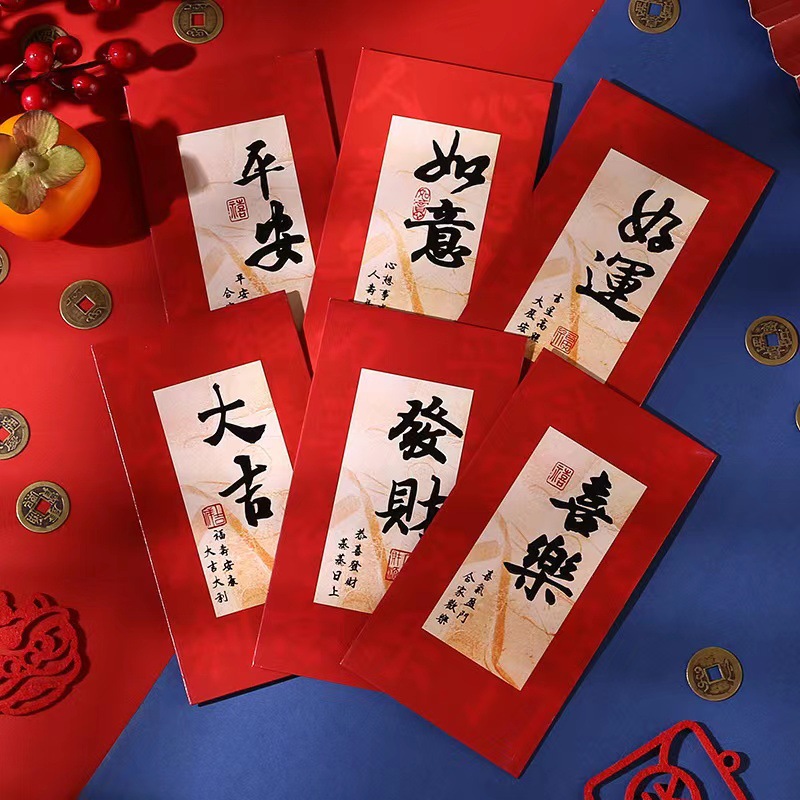 平安
禧
平安
合
如意
如意
心想事
人壽
好運
吉星高照
大展
福
大吉
福壽安康
大吉大利
發財
恭喜發財
蒸蒸日上
喜樂
禧
喜氣盈門
合家歡樂